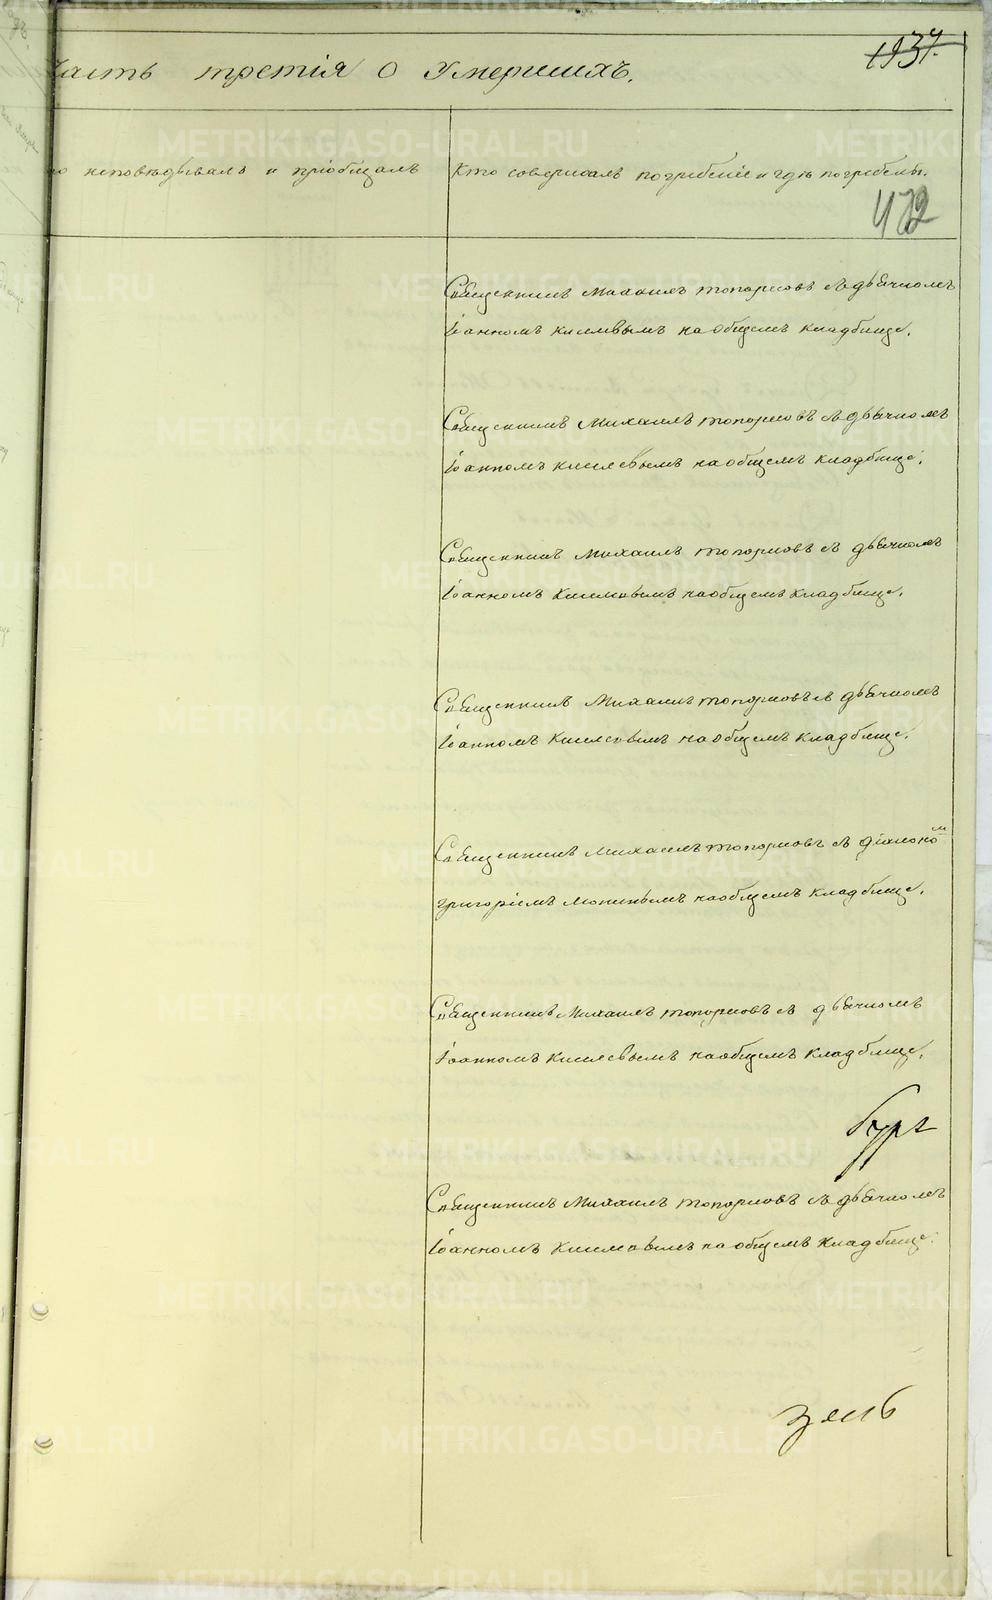 Часть третія о Умершихъ.
1937.
то исповѣдывалъ и пріобщалъ
Кто совершалъ погребеніе и гдѣ погребены.
472
Священникъ Михаилъ Топорковъ съ дьячкомъ
Іоанномъ Киселевымъ на общемъ кладбище.
Священникъ Михаилъ Топорковъ съ дьячкомъ
Іоанномъ Киселевымъ на общемъ кладбище.
Священникъ Михаилъ Топорковъ съ дьячкомъ
Іоанномъ Киселевымъ на общемъ кладбище.
Священникъ Михаилъ Топорковъ съ дьячкомъ
Іоанномъ Киселевымъ на общемъ кладбище.
Священникъ Михаилъ Топорковъ съ діаконом
Григоріемъ на общемъ кладбище.
Священникъ Михаилъ Топорковъ съ дьячкомъ
Іоанномъ Киселевымъ на общемъ кладбище.
Священникъ Михаилъ Топорковъ съ дьячкомъ
Іоанномъ Киселевымъ на общемъ кладбище.
METRIKI.GASO-URAL.RU